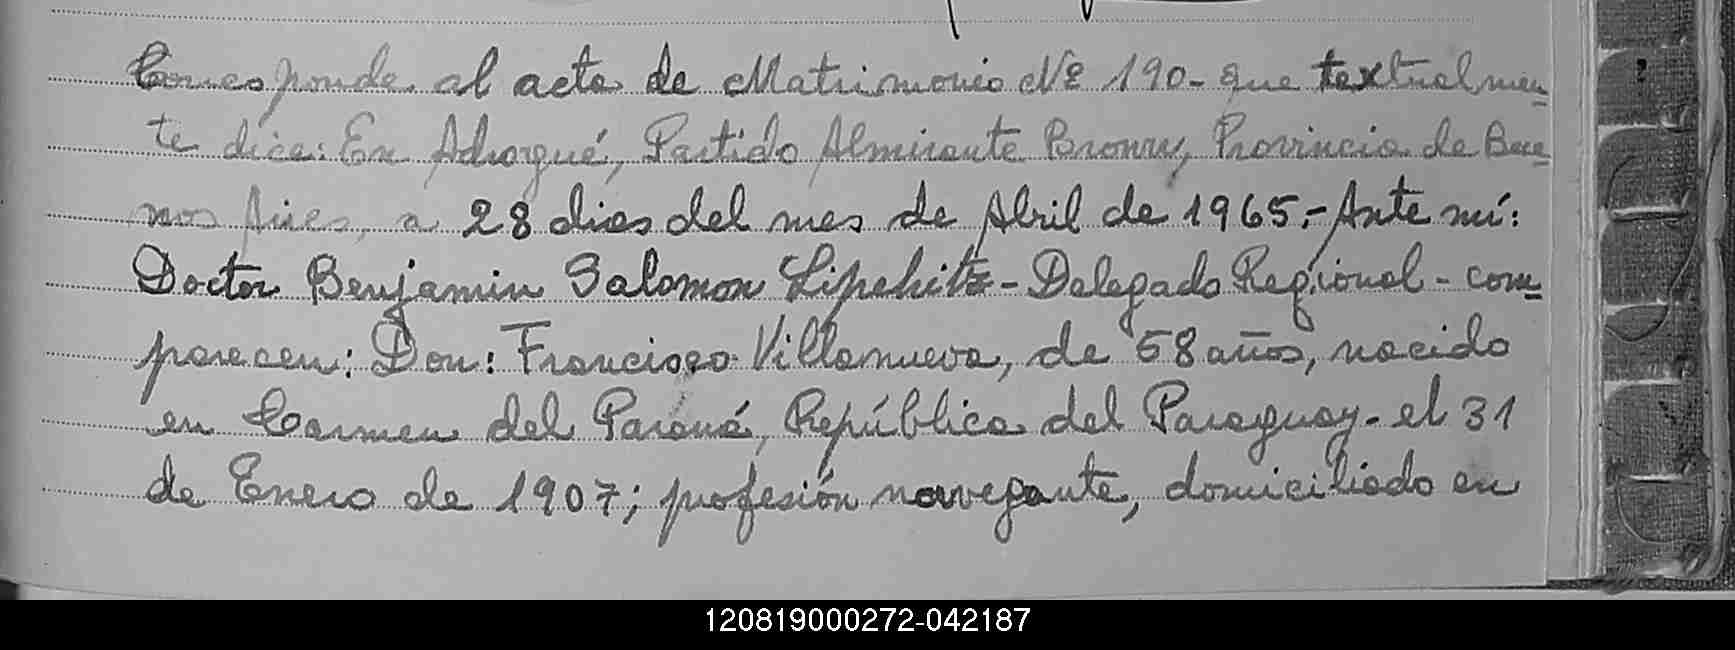 Corresponde al acta de Matrimonio Nº 190- que textualmen=
te dice: En Adrogué, Partido Almirante Brown, Provincia de Bue=
nos Aires, a 28 dias del mes de Abril de 1965.- Ante mí:
Doctor Benjamin Salomon Lipchitz - Delegado Regional - com=
parecen: Don: Francisco Villanueva, de 58 años, nacido
en Carmen del Paraná, República del Paraguay - el 31
de Enero de 1907; profesión navegante, domiciliado en
120819000272-042187